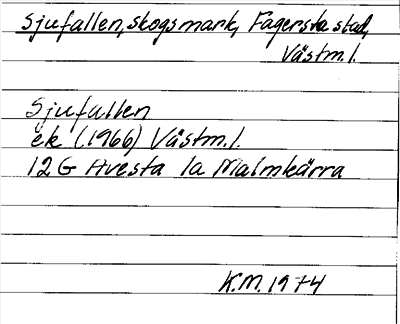 Sjufallen, skogsmark, Fagersta stad,
Västm.l.
Sjufallen
ek (1966) Västm.l.
12G Avesta 1a Malmkärra
K.M. 1974